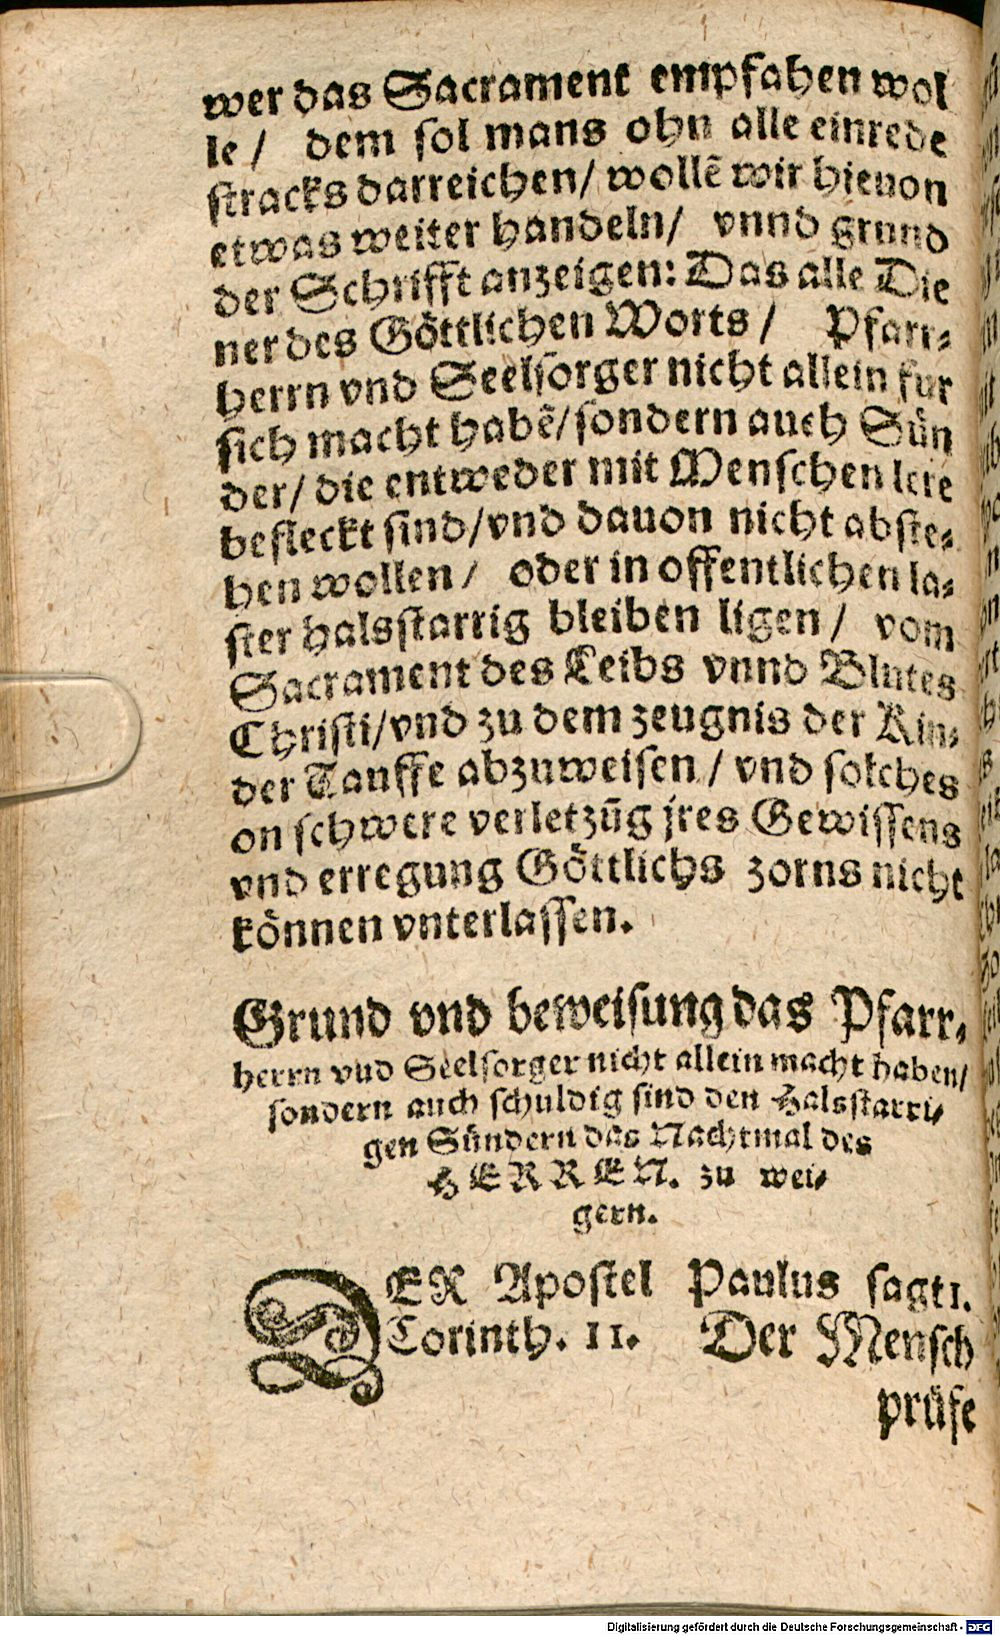 wer das Sacrament empfahen wol
le / dem sol mans ohn alle einrede
stracks darreichen / wollẽ wir hieuon
etwas weiter handeln / vnnd grund
der Schrifft anzeigen: Das alle Die
ner des Göttlichen Worts / Pfarr-
herrn vnd Seelsorger nicht allein fur
sich macht habẽ / sondern auch Sün
der / die entweder mit Menschen lere
befleckt sind / vnd dauon nicht abste-
hen wollen / oder in offentlichen la-
ster halsstarrig bleiben ligen / vom
Sacrament des Leibs vnnd Blutes
Christi / vnd zu dem zeugnis der Kin-
der Tauffe abzuweisen / vnd solches
on schwere verletzũg jres Gewissens
vnd erregung Göttlichs zorns nicht
können vnterlassen.
Grund vnd beweisung das Pfarr-
herrn vnd Seelsorger nicht allein macht haben /
sondern auch schuldig sind den Halsstarri-
gen Sündern das Nachtmal des
HERREN. zu wei-
gern.
DER Apostel Paulus sagt 1.
Corinth. 11. Der Mensch
prüfe
Digitalisierung gefördert durch die Deutsche Forschungsgemeinschaft - DFG